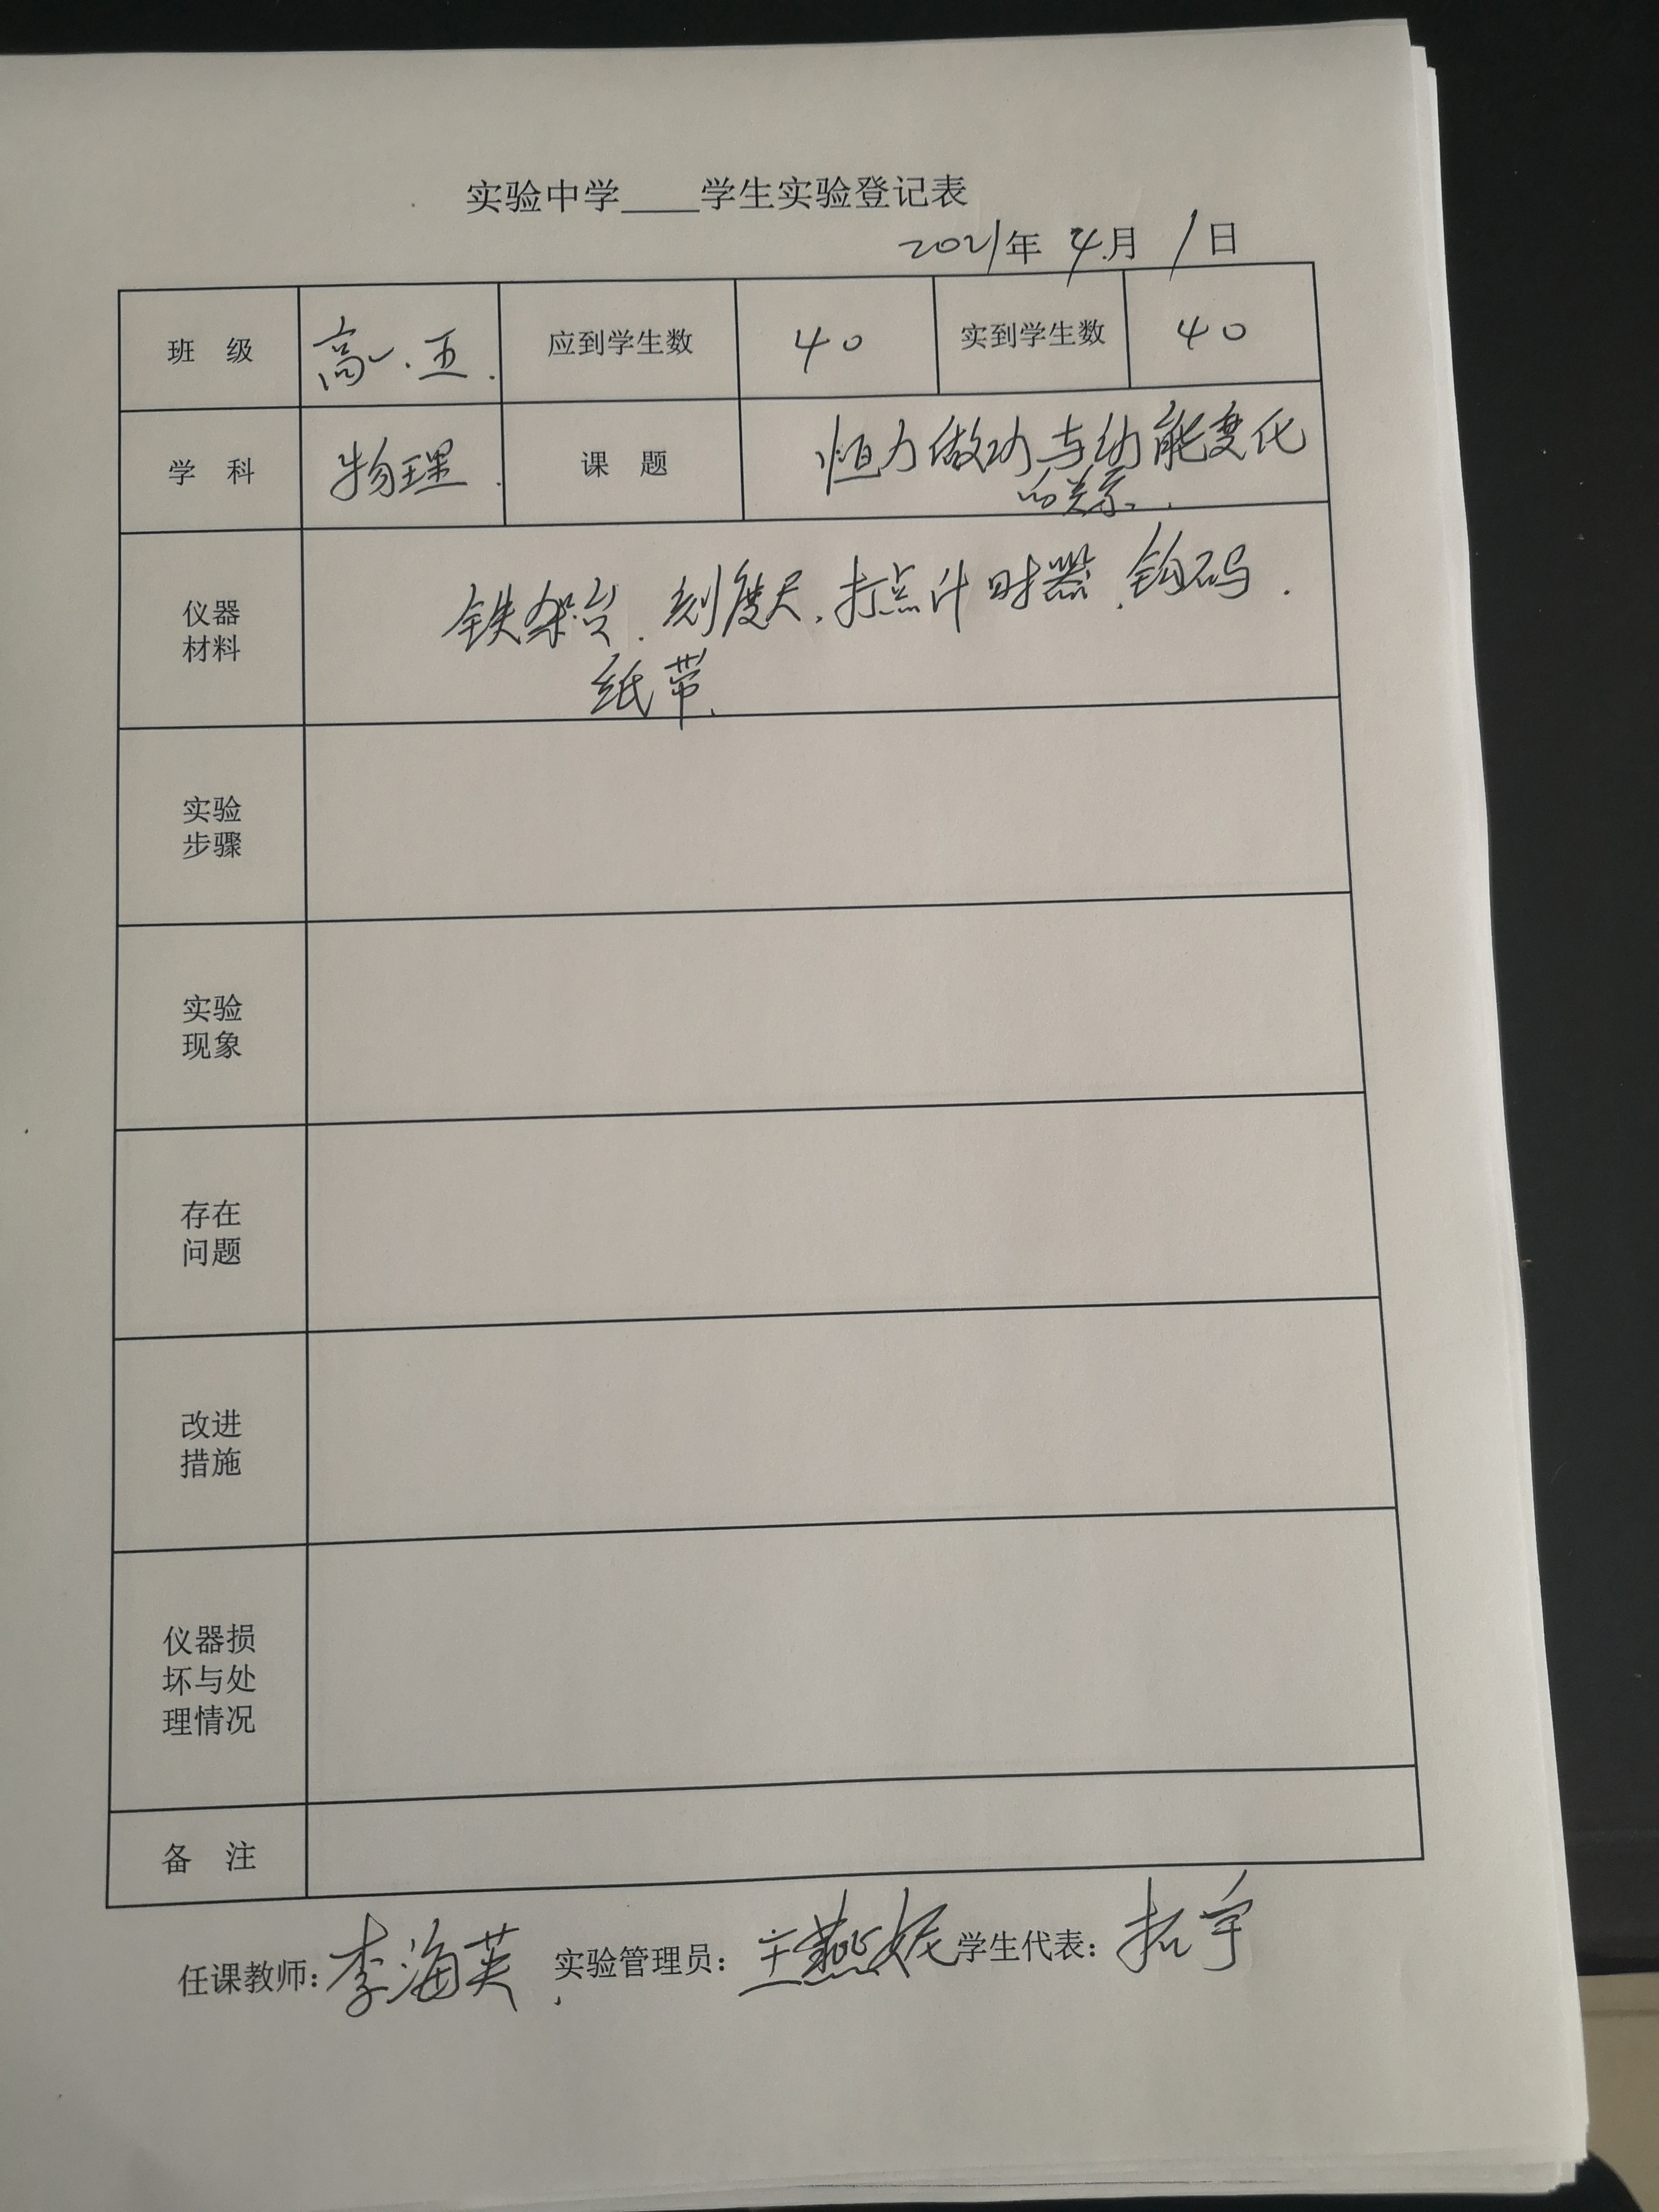 实验中学____学生实验登记表
2021年 4月 1日
班 级 高一.五. 应到学生数 40 实到学生数 40
学 科 物理. 课 题 恒力做功与动能变化
的关系.
仪器
材料
铁架台.刻度尺.打点计时器.钩码.
纸带.
实验
步骤
实验
现象
存在
问题
改进
措施
仪器损
坏与处
理情况
备 注
任课教师:李海英. 实验管理员:王燕妮 学生代表:拓宇